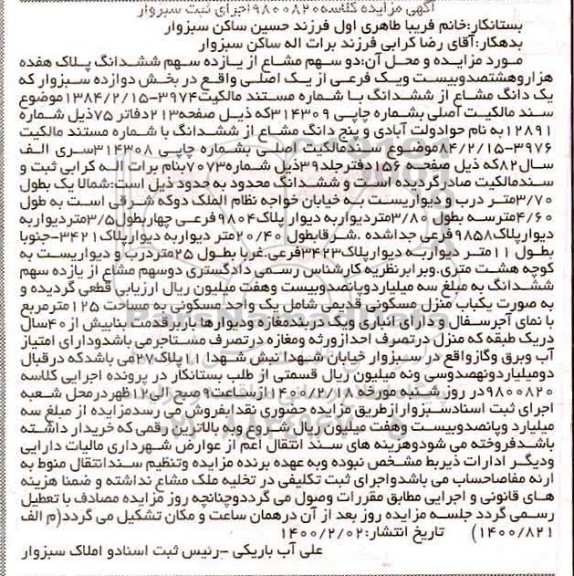 آگهی مزایده کلاسه۹۸۰۰۸۲۰اجرای ثبت سبزوار
بستانکار:خانم فریبا طاهری اول فرزند حسین ساکن سبزوار
بدهکار:آقای رضا کرابی فرزند برات اله ساکن سبزوار
مورد مزایده و محل آن:دو سهم مشاع از یازده سهم ششدانگ پلاک هفده
هزاروهشتصدوبیست ویک فرعی از یک اصلی واقع در بخش دوازده سبزوار که
یک دانگ مشاع از ششدانگ با شماره مستند مالکیت۳۹۷۴-۱۳۸۴/۲/۱۵موضوع
سند مالکیت اصلی بشماره چاپی ۳۱۴۳۰۹که ذیل صفحه۲۱۳دفاتر ۷۵ذیل شماره
۱۲۸۹۱به نام حوادولت آبادی و پنج دانگ مشاع از ششدانگ با شماره مستند مالکیت
۳۹۷۶-۸۴/۲/۱۵موضوع سندمالکیت اصلی بشماره چاپی ۳۱۴۳۰۸سری الف
سال۸۲که ذیل صفحه ۱۵۶دفترجلد۳۹ذیل شماره۷۰۷۳بنام برات اله کرابی ثبت و
سندمالکیت صادرگردیده است و ششدانگ محدود به حدود ذیل است:شمالا یک بطول
۳/۷۰متر درب و دیواریست به خیابان خواجه نظام الملک دوکه شرقی است به طول
۴/۶۰مترسه بطول ۳/۸۰متردیواربه دیوارپلاک۹۸۰۴فرعی چهاربطول۳/۵متردیواربه
دیوارپلاک۹۸۵۸فرعی جداشده .شرقابطول ۲۰/۴۰متر دیواربه دیوارپلاک۳۴۲۱-جنوبا
بطول ۱۱متر دیواربه دیوارپلاک۳۴۲۳فرعی.غربا بطول ۲۵متردرب و دیواریست به
کوچه هشت متری.وبرابرنظریه کارشناس رسمی دادگستری دوسهم مشاع از یازده سهم
ششدانگ به مبلغ سه میلیاردوپانصدوبیست وهفت میلیون ریال ارزیابی قطعی گردیده و
به صورت یکباب منزل مسکونی قدیمی شامل یک واحد مسکونی به مساحت ۱۲۵مترمربع
با نمای آجرسفال و دارای انباری ویک دربندمغازه ودیوارها باربرقدمت بنابیش از۴۰سال
دریک طبقه که منزل درتصرف احدازورثه ومغازه درتصرف مستاجرمی باشدودارای امتیاز
آب وبرق وگازواقع در سبزوار خیابان شهدا نبش شهدا ۱۱پلاک۲۷می باشدکه درقبال
دومیلیاردونهصدوسی ونه میلیون ریال قسمتی از طلب بستانکار در پرونده اجرایی کلاسه
۹۸۰۰۸۲۰در روز شنبه مورخه ۱۴۰۰/۲/۱۸ازساعت۹ صبح الی۱۲ظهردرمحل شعبه
اجرای ثبت اسنادسبزوارازطریق مزایده حضوری نقدابفروش می رسدمزایده از مبلغ سه
میلیارد وپانصدوبیست وهفت میلیون ریال شروع وبه بالاترین رقمی که خریدار داشته
باشدفروخته می شودوهزینه های سند انتقال اعم از عوارض شهرداری مالیات دارایی
ودیگر ادارات ذیربط مشخص نبوده وبه عهده برنده مزایده وتنظیم سندانتقال منوط به
ارئه مفاصاحساب می باشدواجرای ثبت تکلیفی در تخلیه ملک مشاع نداشته و ضمنا هزینه
های قانونی و اجرایی مطابق مقررات وصول می گرددوچنانچه روز مزایده مصادف با تعطیل
رسمی گردد جلسه مزایده روز بعد از آن درهمان ساعت و مکان تشکیل می گردد(م الف
۱۴۰۰/۸۲۱)     تاریخ انتشار:۱۴۰۰/۲/۰۲
علی آب باریکی -رئیس ثبت اسنادو املاک سبزوار